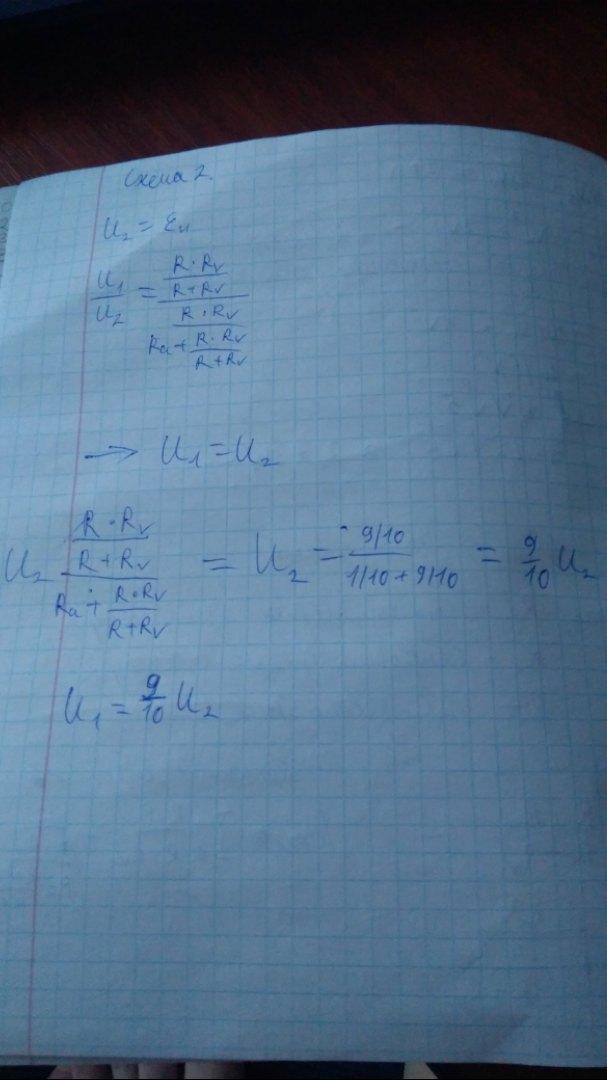 Схема 2.
U₂ = ℰи
U₁/U₂ = (R·Rv/(R+Rv))/(R·Rv/(Ra+R·Rv/(R+Rv)))
→ U₁=U₂
U₂ (R·Rv/(R+Rv))/(Ra+R·Rv/(R+Rv)) = U₂ = (9/10)/(1/10+9/10) = 9/10 U₂
U₁ = 9/10 U₂